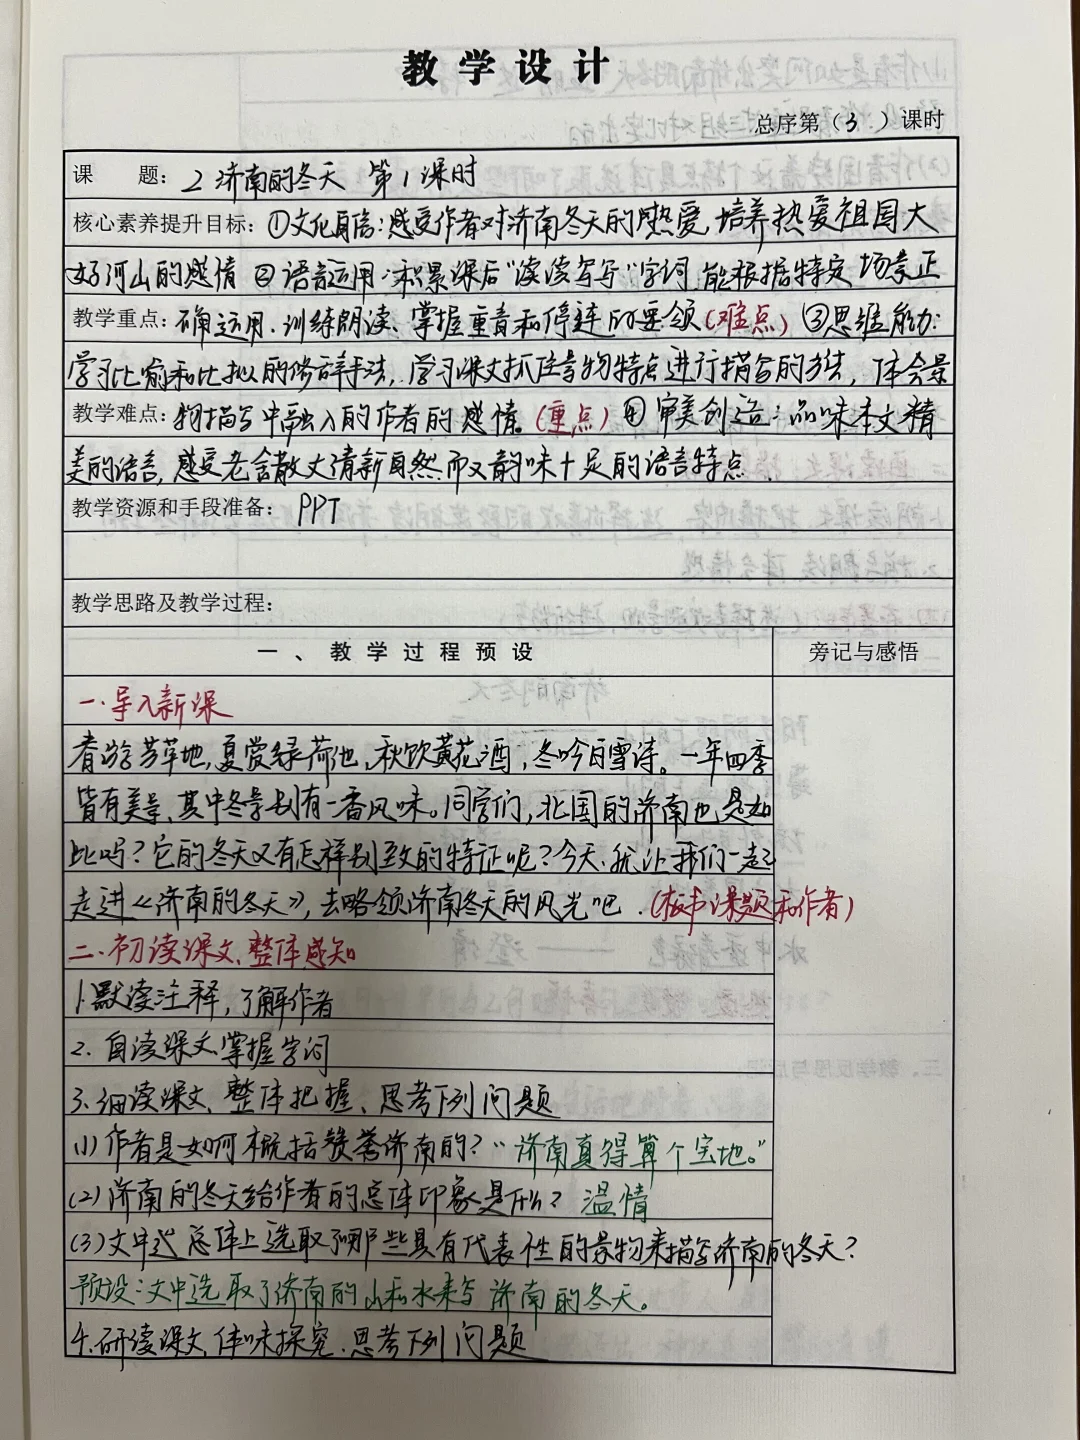 教学设计
总序第（3）课时
课 题：2 济南的冬天 第1课时
核心素养提升目标：①文化自信：感受作者对济南冬天的热爱，培养热爱祖国大
好河山的感情 ②语言运用：积累课后“读读写写”字词，能根据特定场景正
教学重点：确运用．训练朗读、掌握重音和停连的要领（难点）③思维能力：
学习比喻和比拟的修辞手法，学习课文抓住景物特点进行描写的方法，体会景
教学难点：物描写中融入的作者的感情。（重点）④审美创造：品味本文精
美的语言，感受老舍散文清新自然而又韵味十足的语言特点．
教学资源和手段准备：PPT
教学思路及教学过程：
一、教学过程预设 旁记与感悟
一．导入新课
春游芳草地，夏赏绿荷池，秋饮黄花酒，冬吟白雪诗。一年四季
皆有美景，其中冬景别有一番风味。同学们，北国的济南也是如
此吗？它的冬天又有怎样别致的特征呢？今天，就让我们一起
走进《济南的冬天》，去略领济南冬天的风光吧．（板书课题和作者）
二、初读课文，整体感知
1.默读注释，了解作者
2. 自读课文，掌握字词
3.细读课文，整体把握、思考下列问题
(1)作者是如何概括赞誉济南的？“济南真得算个宝地。”
(2)济南的冬天给作者的总体印象是什么？ 温情
(3)文中总体上选取了哪些具有代表性的景物来描写济南的冬天？
预设：文中选取了济南的山和水来写济南的冬天。
4.研读课文，体味探究．思考下列问题